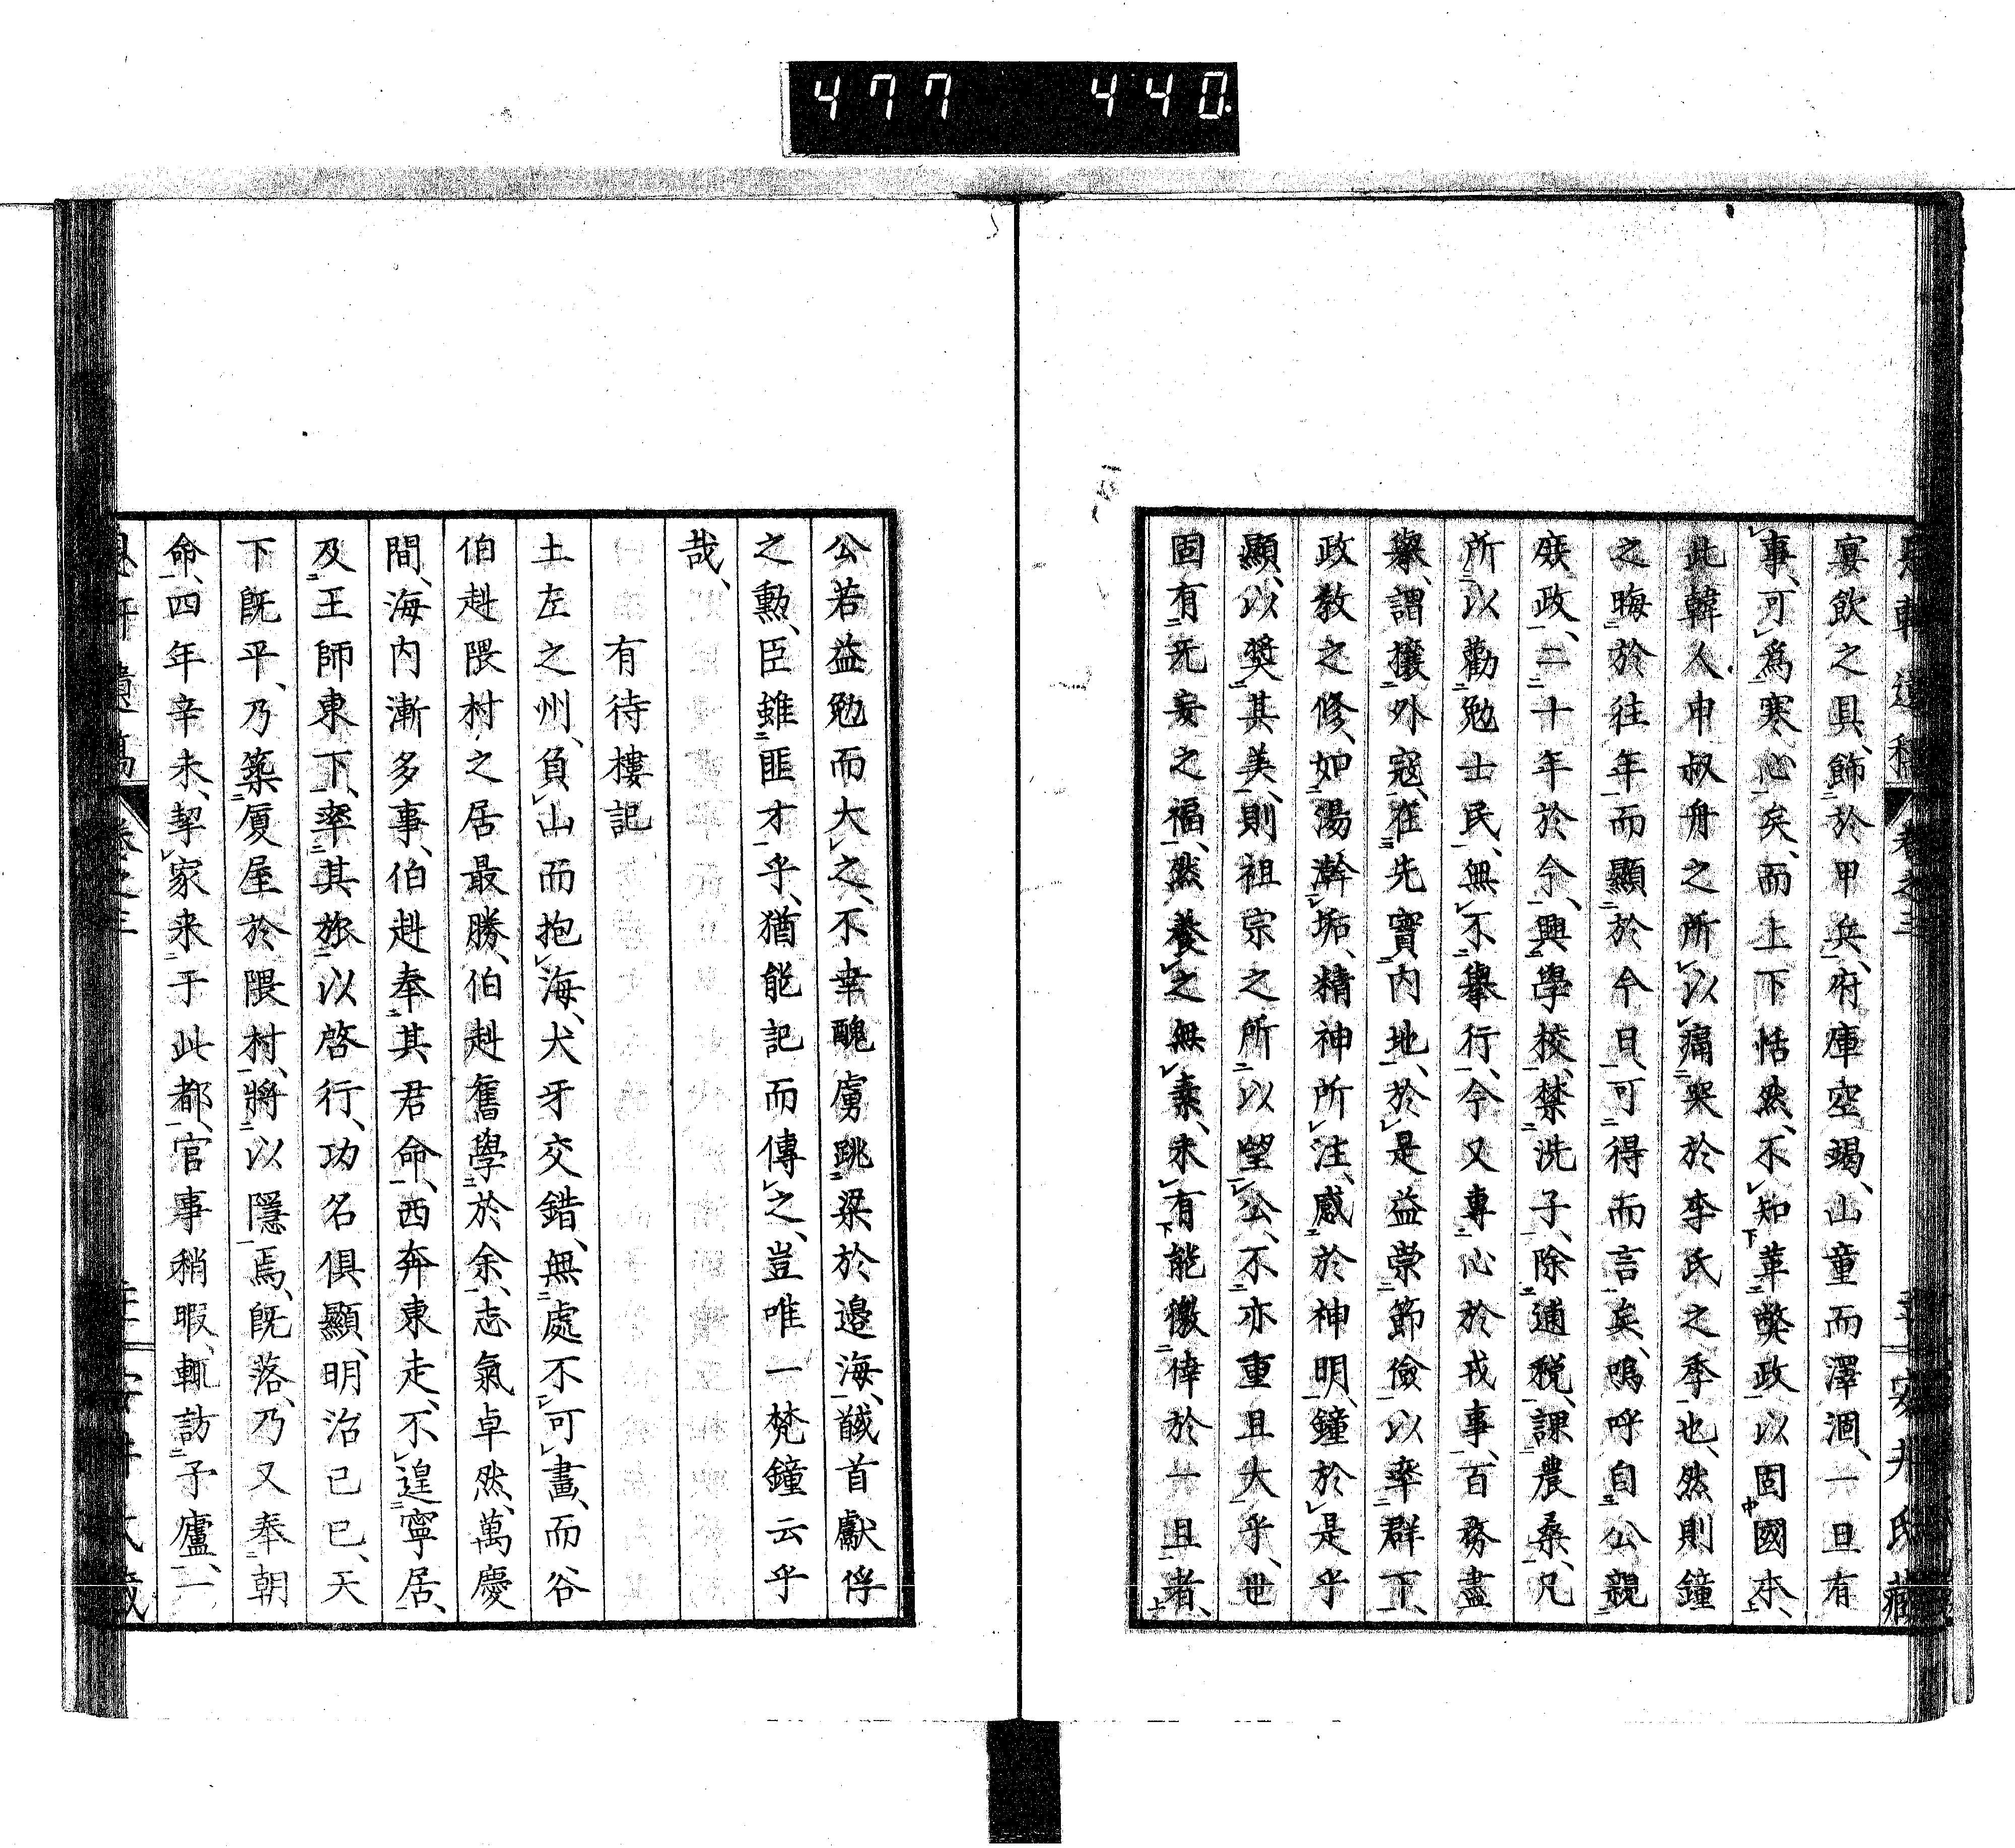 477 440
宴飲之具、飾於甲兵、府庫空竭、山童而澤涸、一旦有
事、可爲寒心矣、而上下恬然、不知革獘政以固國本、
此韓人申叔舟之所以痛哭於李氏之季也、然則鐘
之晦於往年而顯於今日、可得而言矣、嗚呼自公親
庶政、二十年於今、興學校、禁洗子、除逋稅、課農桑、凡
所以勸勉士民、無不擧行、今又專心於戎事、百務盡
擧、謂攘外寇、在先實内地、於是益崇節儉以率群下、
政教之修、如湯澣垢、精神所注、感於神明、鐘於是乎
顯、以奬其美、則祖宗之所以望公、不亦重且大乎、世
固有无妄之福、然養之無素、未有能徼倖於一旦者、
公若益勉而大之、不幸醜虜跳梁於邉海、馘首獻俘
之勲、臣雖匪才乎、猶能記而傳之、豈唯一梵鐘云乎
哉、
有待樓記
土左之州、負山而抱海、犬牙交錯、無處不可畫、而谷
伯赳隈村之居最勝、伯赳奮學於余、志氣卓然、萬慶
間、海内漸多事、伯赳奉其君命、西奔東走、不遑寧居、
及王師東下、率其旅以啓行、功名俱顯、明治己巳、天
下旣平、乃築廈屋於隈村、將以隱焉、旣落、乃又奉朝
命、四年辛未、挈家来于此都、官事稍暇、輒訪予廬、一